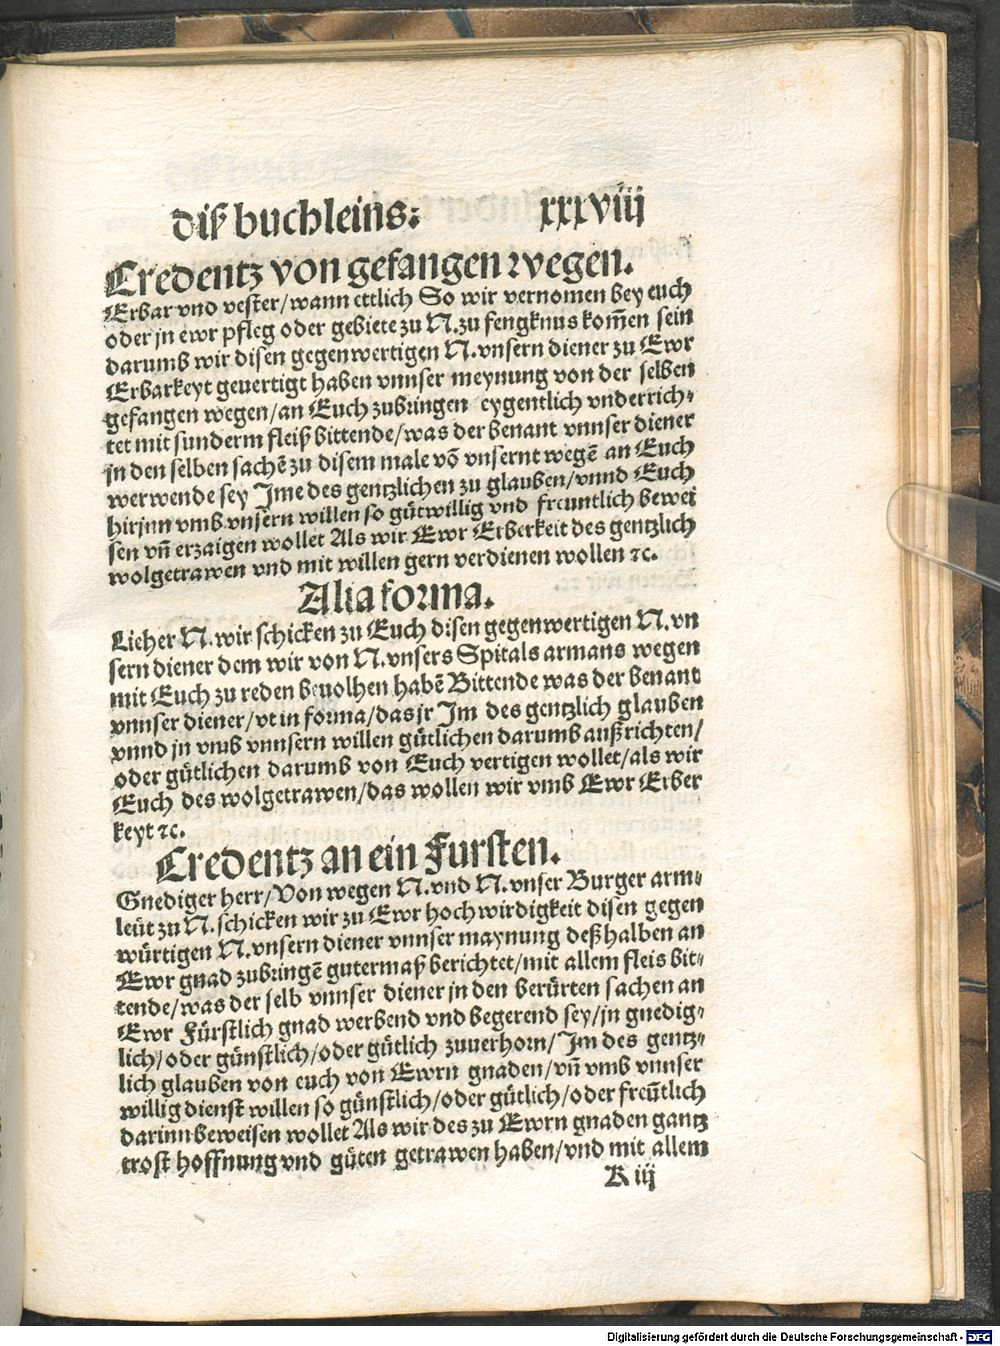 diß buchleins: xxxviij
Credentz von gefangen wegen.
Erbar vnd vester/wann ettlich So wir vernomen bey euch
oder jn ewr pfleg oder gebiete zu N. zu fengknus kom̄en sein
darumb wir disen gegenwertigen N. vnsern diener zu Ewr
Erbarkeyt geuertigt haben vnnser meynung von der selben
gefangen wegen/an Euch zubringen eygentlich vnderrich⸗
tet mit sunderm fleiß bittende/was der benant vnnser diener
jn den selben sachē zu disem male vō vnsernt wegē an Euch
werwende sey Jme des gentzlichen zu glauben/vnnd Euch
hirjnn vmb vnsern willen so gůtwillig vnd freuntlich bewei
sen vn̄ erzaigen wollet Als wir Ewr Erberkeit des gentzlich
wolgetrawen vnd mit willen gern verdienen wollen ⁊c.
Alia forma.
Lieher N. wir schicken zu Euch disen gegenwertigen N. vn
sern diener dem wir von N. vnsers Spitals armans wegen
mit Euch zu reden beuolhen habē Bittende was der benant
vnnser diener/vt in forma/das jr Jm des gentzlich glauben
vnnd jn vmb vnnsern willen gůtlichen darumb außrichten/
oder gůtlichen darumb von Euch vertigen wollet/als wir
Euch des wolgetrawen/das wollen wir vmb Ewr Erber
keyt ⁊c.
Credentz an ein Fursten.
Gnediger herr/Von wegen N. vnd N. vnser Burger arm⸗
leüt zu N. schicken wir zu Ewr hochwirdigkeit disen gegen
würtigen N. vnsern diener vnnser maynung deßhalben an
Ewr gnad zubringē gutermaß berichtet/mit allem fleis bit⸗
tende/was der selb vnnser diener jn den berürten sachen an
Ewr Fürstlich gnad werbend vnd begerend sey/jn gnedig⸗
lich/oder günstlich/oder gůtlich zuuerhorn/Jm des gentz⸗
lich glauben von euch von Ewrn gnaden/vn̄ vmb vnnser
willig dienst willen so günstlich/oder gůtlich/oder freūtlich
darinn beweisen wollet Als wir des zu Ewrn gnaden gantz
trost hoffnung vnd gůten getrawen haben/vnd mit allem
K iij
Digitalisierung gefördert durch die Deutsche Forschungsgemeinschaft - DFG